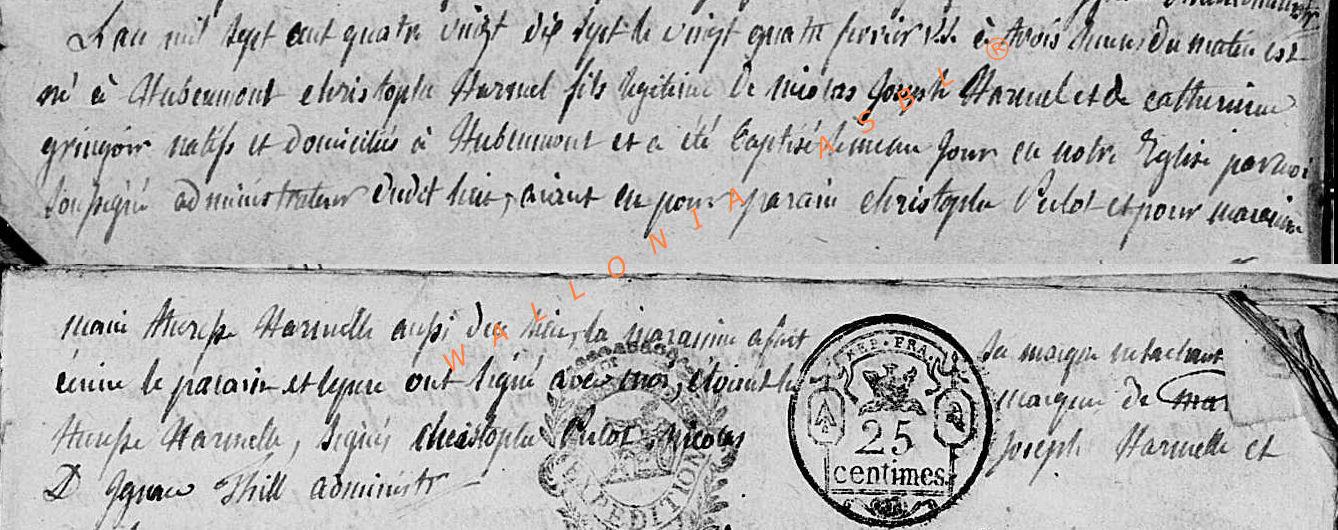 L'an mil sept cent quatre vingt dix sept le vingt quatre fevrier à trois heures du matin est
né à Hubermont christophe Harmel fils legitime de nicolas Joseph Harmel et de catherinne
gringoir natifs et domiciliés à Hubermont et a été baptisé le meme jour en notre Eglise par moi
soussigné administrateur dudit lieu, aiant eu pour parain christophe Pulot et pour maraine
marie therese Harmelle aussi du lieu, la maraine a fait sa marque ne sachant
écrire le parain et le pere ont signé avec moi, étoient la marque de mar
therese Harmelle, signés christophe Pulot, nicolas Joseph Harmelle et
D Ignace Thill administr
WALLONIA ASBL ®
REP. FRA.
25
centimes
EXPEDITION